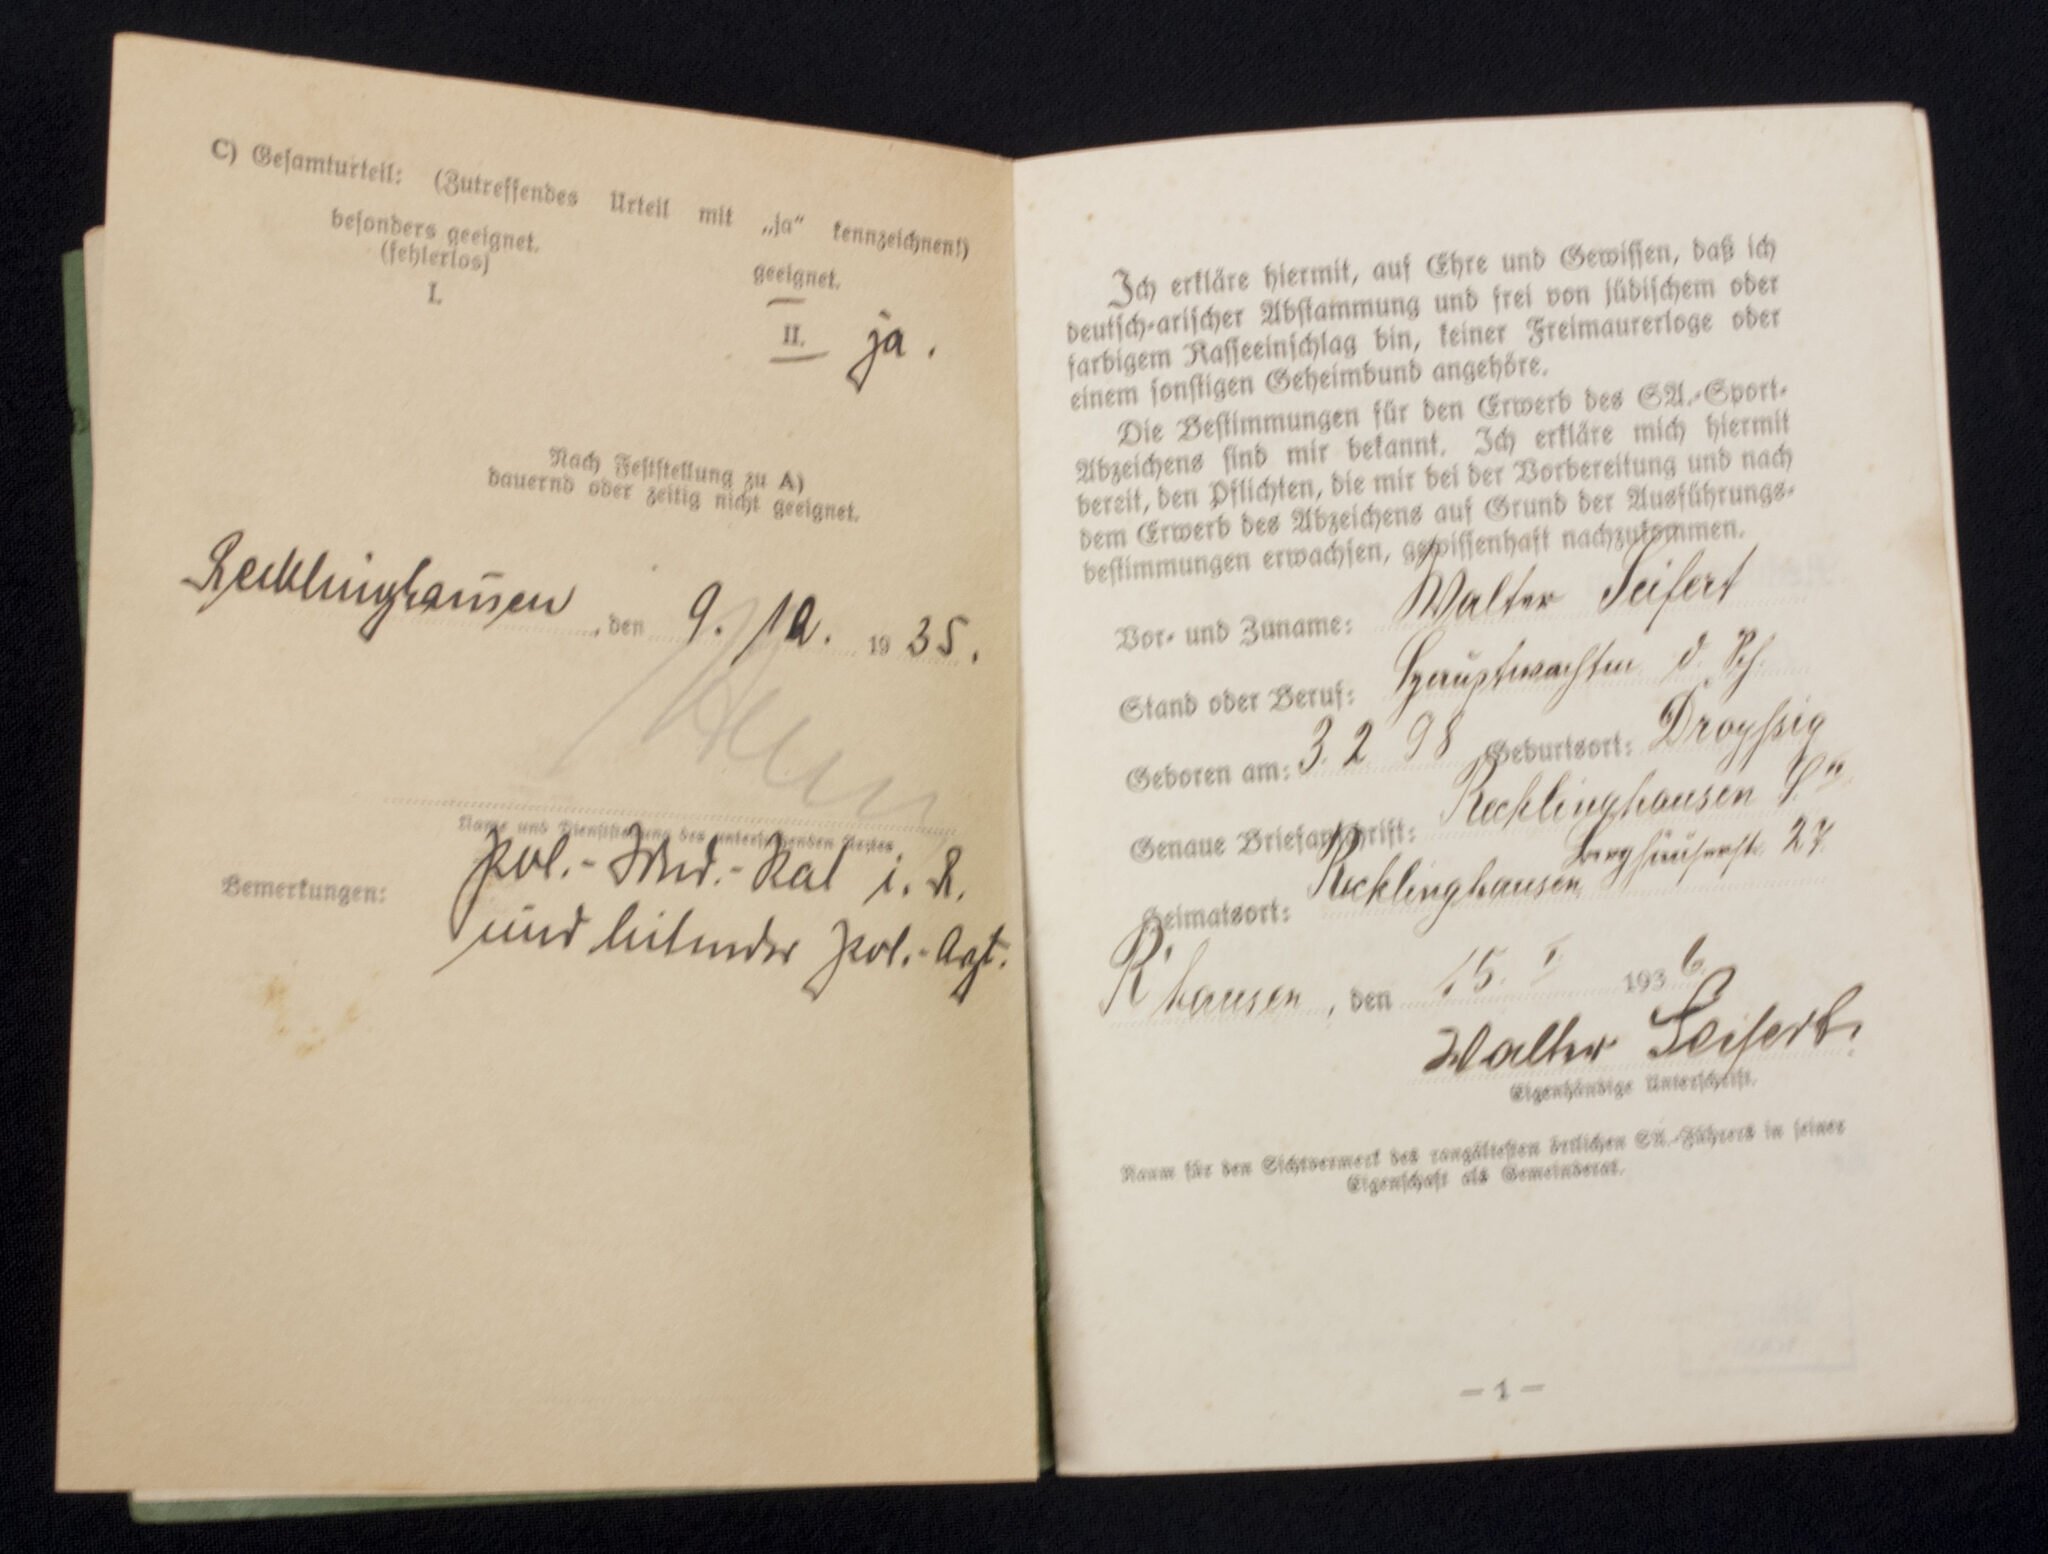 C) Gesamturteil: (Zutreffendes Urteil mit „ja“ kennzeichnen!)
besonders geeignet.
(fehlerlos)
I.
geeignet.
II. ja.
Nach Feststellung zu A)
dauernd oder zeitig nicht geeignet.
Recklinghausen, den 9. 12. 1935.
Name und Dienststellung des untersuchenden Arztes
Pol.-Med.-Rat i. R.
Bemerkungen:
und leitender Pol.-Arzt.
Ich erkläre hiermit, auf Ehre und Gewissen, daß ich
deutsch-arischer Abstammung und frei von jüdischem oder
farbigem Rasseeinschlag bin, keiner Freimaurerloge oder
einem sonstigen Geheimbund angehöre.
Die Bestimmungen für den Erwerb des SA.-Sport-
Abzeichens sind mir bekannt. Ich erkläre mich hiermit
bereit, den Pflichten, die mir bei der Vorbereitung und nach
dem Erwerb des Abzeichens auf Grund der Ausführungs-
bestimmungen erwachsen, gewissenhaft nachzukommen.
Vor- und Zuname: Walter Seifert
Stand oder Beruf: Hauptwachtm. d. Sch.
Geboren am: 3. 2. 98 Geburtsort: Droyßig
Genaue Briefanschrift: Recklinghausen
Berghäuserstr. 27.
Heimatsort: Recklinghausen
R'hausen, den 15. I. 1936
Walter Seifert.
Eigenhändige Unterschrift.
Raum für den Sichtvermerk des rangältesten örtlichen SA.-Führers in seiner
Eigenschaft als Gemeinderat.
— 1 —